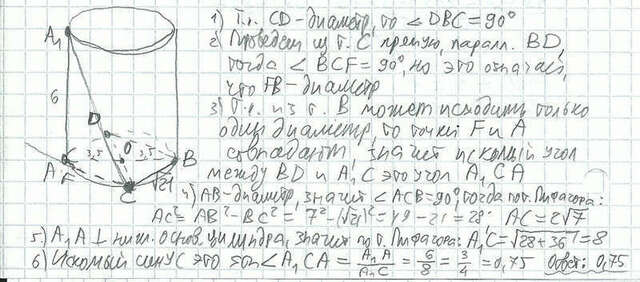 1) Т.к. CD - диаметр, то ∠DBC = 90°
2) Проведем из т. C прямую, паралл. BD,
тогда ∠BCF = 90°, но это означает,
что FB - диаметр
3) Т.к. из т. B может исходить только
один диаметр, то точки F и A
совпадают, значит искомый угол
между BD и A₁C это угол A₁CA
4) AB - диаметр, значит ∠ACB = 90°, тогда по т. Пифагора:
AC² = AB² - BC² = 7² - (√21)² = 49 - 21 = 28; AC = 2√7
5) A₁A ⊥ нижн. основ. цилиндра, значит по т. Пифагора: A₁C = √28 + 36 = 8
6) Искомый синус это sin∠A₁CA = A₁A/A₁C = 6/8 = 3/4 = 0,75 Ответ: 0,75
A₁
6
D
O
3,5 3,5
A F
B
C
√21